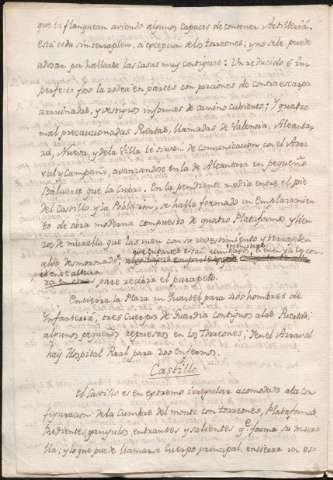 que la flanquean aviendo algunos capaces de contener Artilleria.
Esta toda sin terraplen, a excepcion de los torreones, y no se le puede
adosar por hallarse las casas muy contiguas: Un reducido è im-
perfecto foso la rodea en partes con porciones de contraescarpa
arruinadas, y vestigios informes de camino cubierto; Y quatro
mal precaucionadas Puertas, llamadas de Valencia, Alcanta-
ra, Nueva, y de la Villa le sirven de comunicacion con el Arra-
val y Campaña, avanzandose en la de Alcantara un pequeño
Baluarte que la cubre. En la pendiente media entre el pie
del Castillo y la Poblacion, se halla formado un Emplazamien-
to de obra moderna compuesto de quatro Plataformas, y lien-
zos de muralla que las unen con su revestimiento y terraplen
solo demoronado,
para recivir el parapeto.
Encierra la Plaza un Quartel para 400 hombres de
Infanteria; tres Cuerpos de Guardia contiguos a las Puertas;
algunos pequeños repuestos en los Torreones; Y en el Arraval
hay Hospital Real para 200 enfermos.
Castillo
El Castillo es en extremo irregular acomodado a la con-
figuracion de la Cumbre del monte con torreones, Plataformas,
Redientes, y angulos entrantes y salientes qe. forma su mura-
lla; y lo que puede llamarse Cuerpo principal encierra un es-